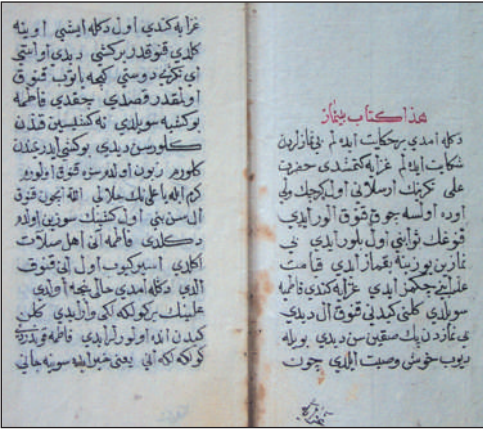 هذا كتاب بينماز
دكله امدي بر حكايت ايده لم بي نمازلردن
شكايت ايده لم غزايه كتمشدى حضرت
علي تكرينك ارسلاني اول كرجك ولي
اوده اولسه چوق قنوق الور ايدي
قنوغك ثوابني اول بلور ايدي بي
نمازن يوزينه بقماز ايدي قيامت
غزايه كندي فاطمه
سويلدي كلني كيدني قنوق ال ديدي
بي نمازدن پك صقين سن ديدي بويله
ديوب خوش وصيت ايلدي چون
غزايه كندي اول دكله ايشي اوينه
كلدي قنوق در بر كشي ديدي
اي تكري دوستي كيجه ياتوب قنوق
اولمقدر قصدي چقدي فاطمه
بو كشيه سويلدي نه كشيسين قندن
كلورسن ديدي بو كشي ايدر يمندن
كلورم زبون اولدم سزه قنوق اولورم
كرم ايله يا علينك حلالي الله ايچون قنوق
ال سن بني اول كشينك سوزين اوله
دكلدي فاطمه اني اهل صلات
اكلدي اسيركيوب اول اني قنوق
الدي دكله امدي حالي نيجه اولدي
علينك بر كولكه لكي وار ايدي كلن
كيدن انده اولورلر ايدي فاطمه
كولكه لكه اني يعني خير ايده سوينه جاني